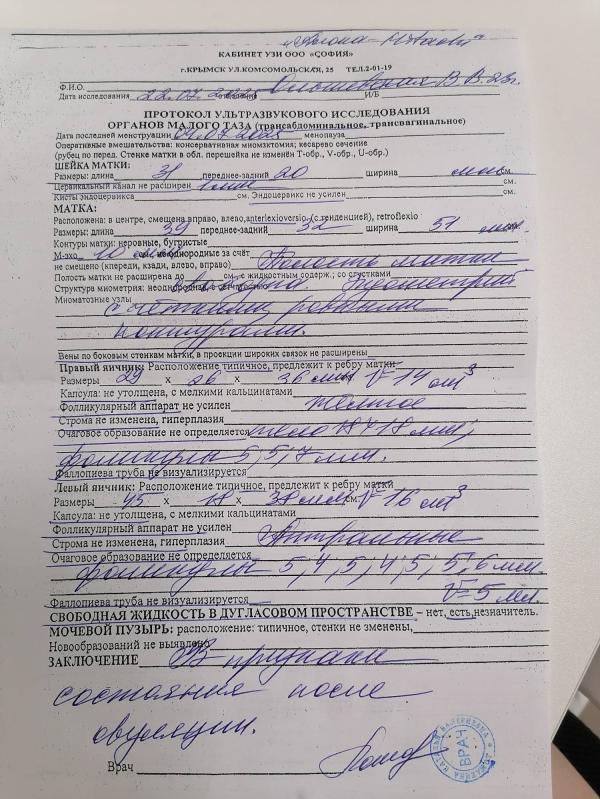 КАБИНЕТ УЗИ ООО «СОФИЯ»
г.КРЫМСК УЛ.КОМСОМОЛЬСКАЯ, 25 ТЕЛ.2-01-19
Ф.И.О. Ольшевская В.В. 23г.
Дата исследования 22.07.2025 отделение И/Б
ПРОТОКОЛ УЛЬТРАЗВУКОВОГО ИССЛЕДОВАНИЯ
ОРГАНОВ МАЛОГО ТАЗА (трансабдоминальное, трансвагинальное)
Дата последней менструации 07.2025 менопауза
Оперативные вмешательства: консервативная миомэктомия; кесарево сечение
(рубец по перед. Стенке матки в обл. перешейка не изменён Т-обр., V-обр., U-обр.)
ШЕЙКА МАТКИ:
Размеры: длина 31 переднее-задний 20 ширина см.
Цервикальный канал не расширен 1 мм см.
Кисты эндоцервикса см. Эндоцервикс не усилен
МАТКА:
Расположена: в центре, смещена вправо, влево,anterlexioversio (с тенденцией), retroflexio
Размеры: длина 39 переднее-задний 32 ширина 51 мм
Контуры матки: неровные, бугристые
М-эхо 10 мм см. неоднородные за счёт
не смещено (кпереди, кзади, влево, вправо) Полость матки
Полость матки не расширена до см., с жидкостным содерж.; со сгустками
Структура миометрия: неоднородная, в сетчатостью эндометрий
Миоматозные узлы с чёткими, ровными
контурами.
Вены по боковым стенкам матки, в проекции широких связок не расширены
Правый яичник: Расположение типичное, предлежит к ребру матки
Размеры 29 х 26 х 36 мм V=14 см³
Капсула: не утолщена, с мелкими кальцинатами
Фолликулярный аппарат не усилен желтое
Строма не изменена, гиперплазия
Очаговое образование не определяется тело 18×18 мм;
фолликулы 5, 5, 7 мм.
Фаллопиева труба не визуализируется
Левый яичник: Расположение типичное, предлежит к ребру матки
Размеры 45 х 18 х 38 мм см. V=16 см³
Капсула: не утолщена, с мелкими кальцинатами
Фолликулярный аппарат не усилен
Строма не изменена, гиперплазия Антральные
Очаговое образование не определяется
фолликулы 5, 4, 5, 4, 5, 5, 6 мм.
Фаллопиева труба не визуализируется V=5 мл.
СВОБОДНАЯ ЖИДКОСТЬ В ДУГЛАСОВОМ ПРОСТРАНСТВЕ – нет, есть, незначитель.
МОЧЕВОЙ ПУЗЫРЬ: расположение: типичное, стенки не зменены,
Новообразований не выявлено
ЗАКЛЮЧЕНИЕ УЗ признаки
состояния после
овуляции.
Врач
ВРАЧ